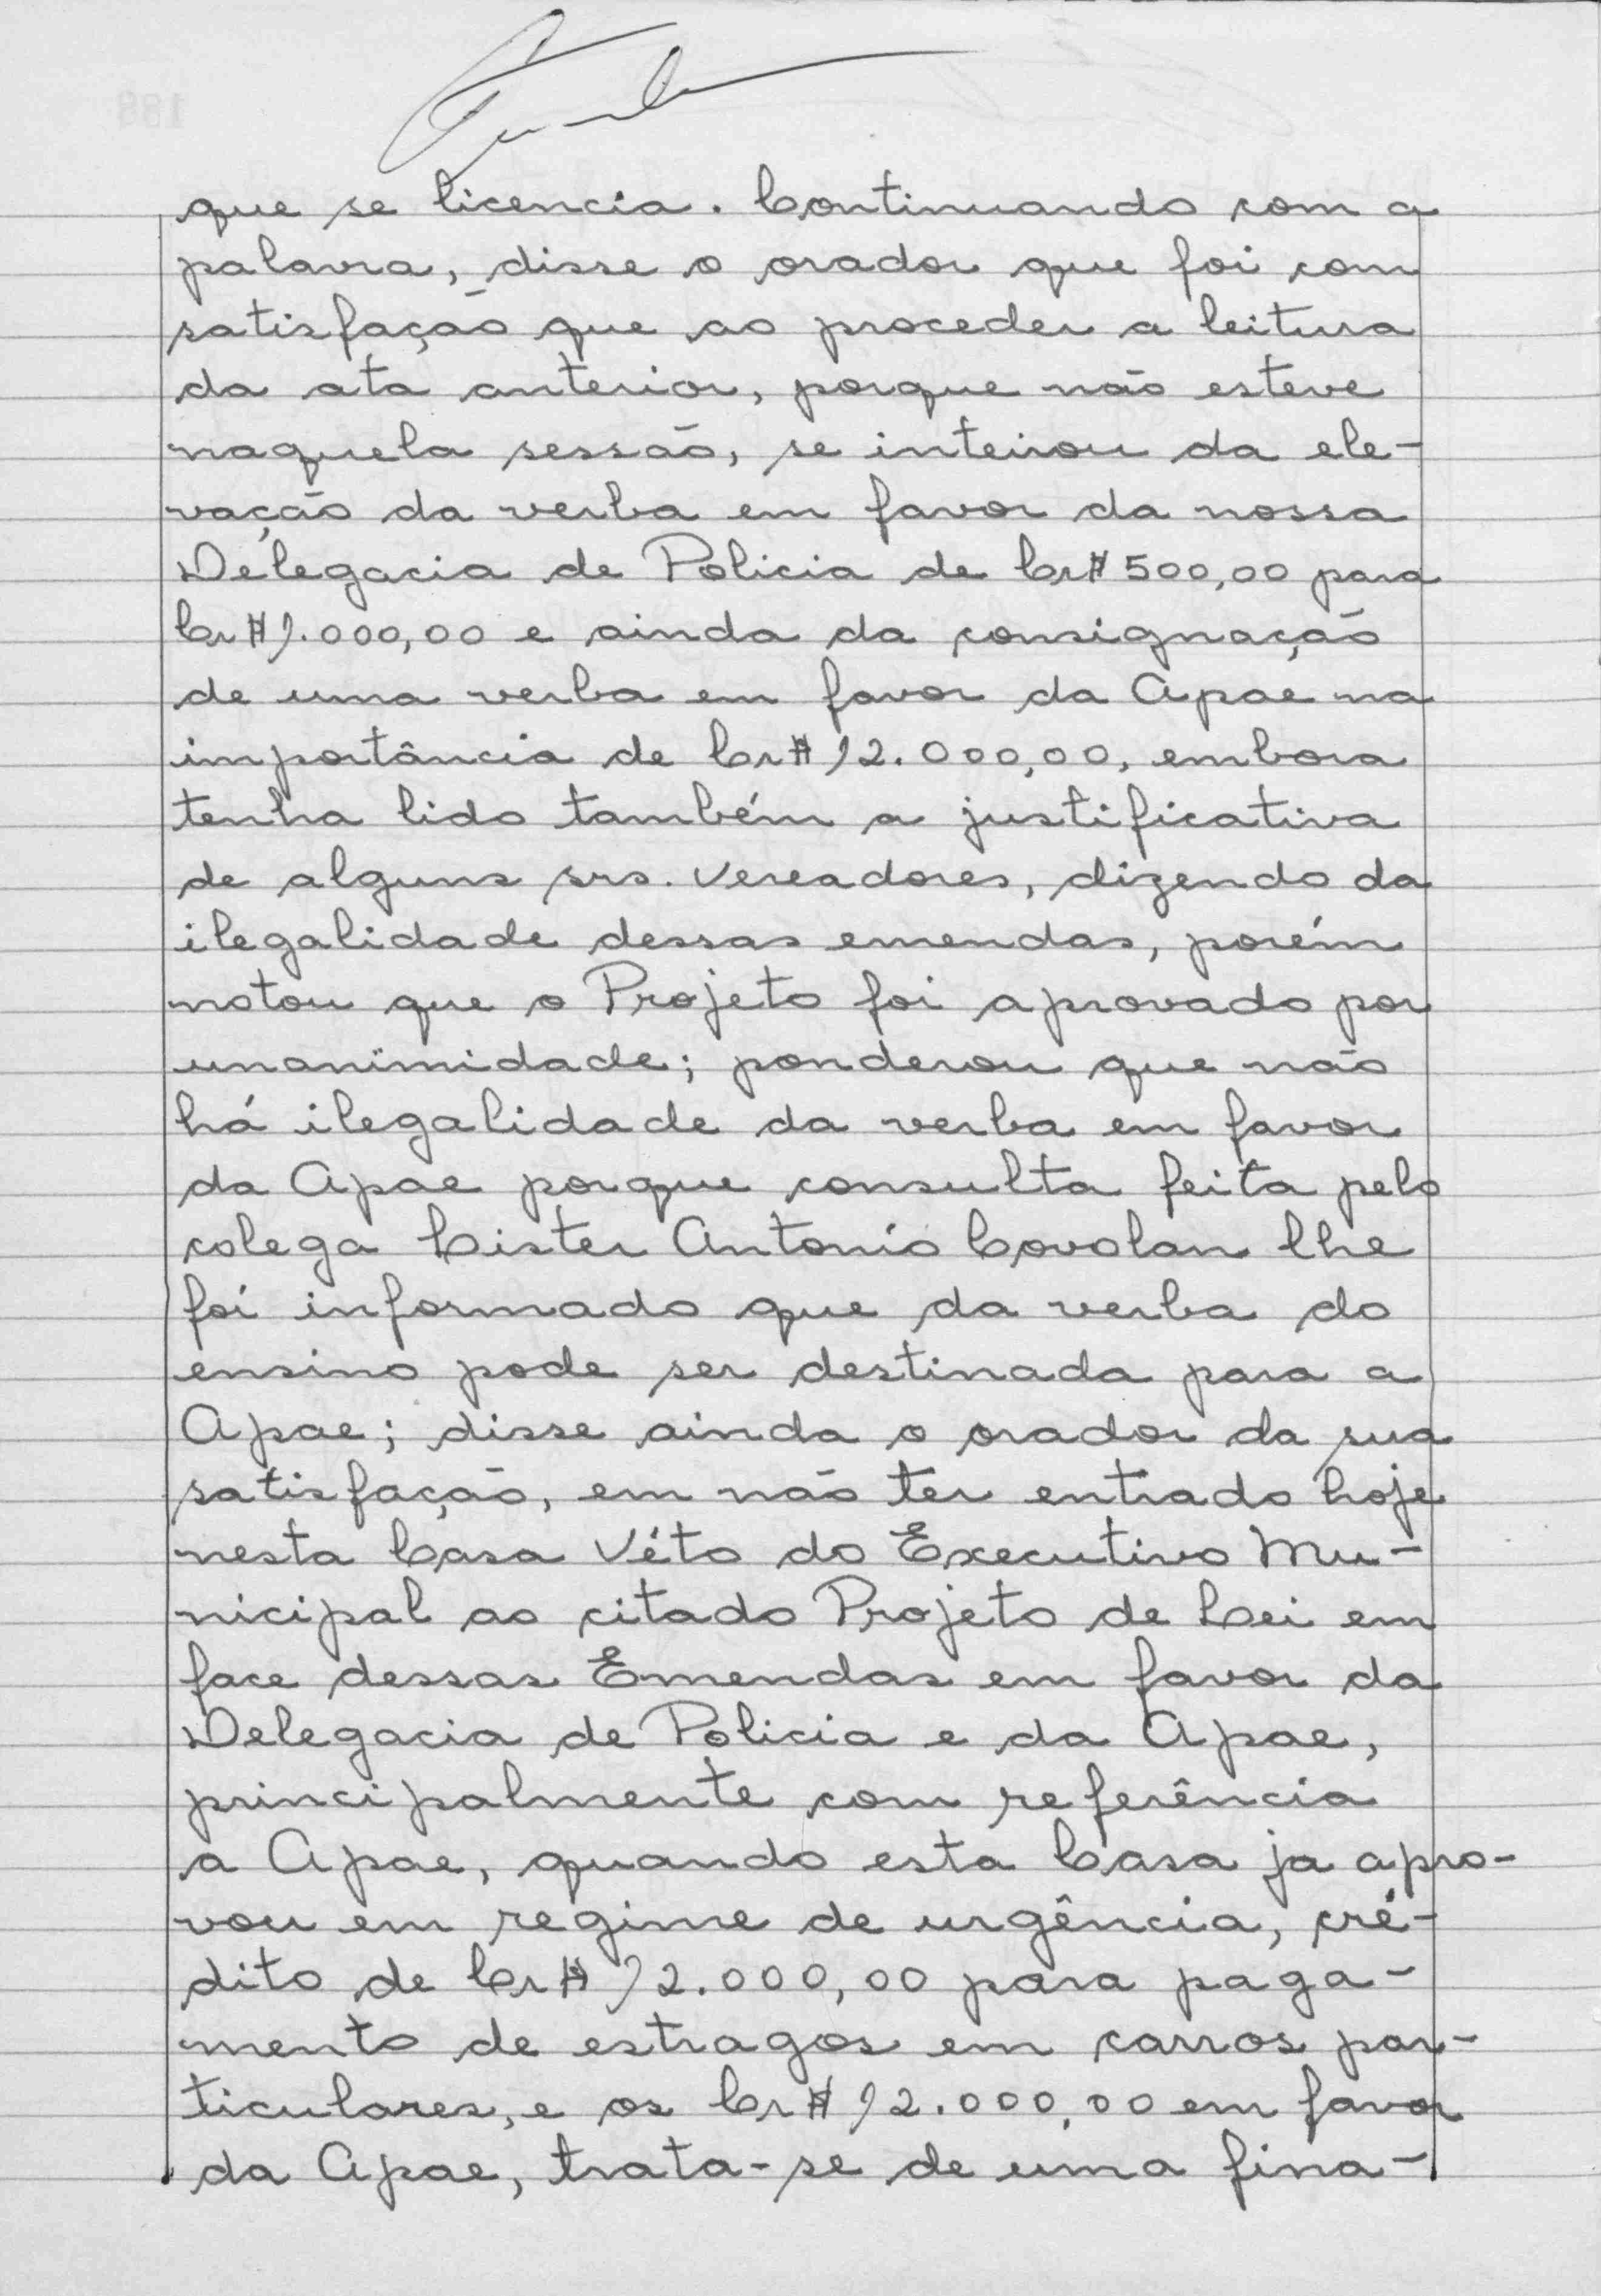 que se licencia. Continuando com a
palavra, disse o orador que foi com
satisfação que ao proceder a leitura
da ata anterior, porque não esteve
naquela sessão, se inteirou da ele-
vação da verba em favor da nossa
Delegacia de Policia de Cr$ 500,00 para
Cr$ 1.000,00 e ainda da consignação
de uma verba em favor da Apae na
importância de Cr$ 12.000,00, embora
tenha lido também a justificativa
de alguns srs. Vereadores, dizendo da
ilegalidade dessas emendas, porém
notou que o Projeto foi aprovado por
unanimidade; ponderou que não
há ilegalidade da verba em favor
da Apae porque consulta feita pelo
colega Lister Antonio Covolan lhe
foi informado que da verba do
ensino pode ser destinada para a
Apae; disse ainda o orador da sua
satisfação, em não ter entrado hoje
nesta Casa Véto do Executivo Mu-
nicipal ao citado Projeto de Lei em
face dessas Emendas em favor da
Delegacia de Policia e da Apae,
principalmente com referência
a Apae, quando esta Casa ja apro-
vou em regime de urgência, cré-
dito de Cr$ 12.000,00 para paga-
mento de estragos em carros par-
ticulares, e os Cr$ 12.000,00 em favor
da Apae, trata-se de uma fina-